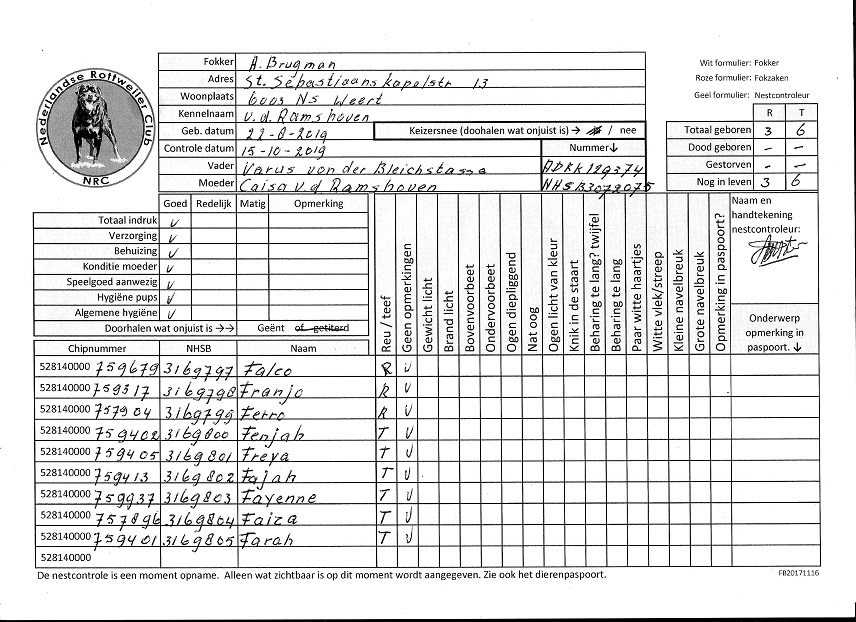 Nederlandse Rottweiler Club
NRC
Fokker A. Brugman
Adres St. Sebastiaanskapelstr 13
Woonplaats 6003 NS Weert
Kennelnaam v.d. Ramshoven
Geb. datum 22-8-2019 Keizersnee (doohalen wat onjuist is) → / nee
Controle datum 15-10-2019 Nummer↓
Vader Varus von der Bleichstassa ADRK129374
Moeder Caisa v.d Ramshoven NHSB3072075
Wit formulier: Fokker
Roze formulier: Fokzaken
Geel formulier: Nestcontroleur
R T
Totaal geboren 3 6
Dood geboren - -
Gestorven - -
Nog in leven 3 6
Goed Redelijk Matig Opmerking
Totaal indruk v
Verzorging v
Behuizing v
Konditie moeder v
Speelgoed aanwezig v
Hygiëne pups v
Algemene hygiëne v
Doorhalen wat onjuist is →→ Geënt of getiterd
Chipnummer NHSB Naam
Reu / teef
Geen opmerkingen
Gewicht licht
Brand licht
Bovenvoorbeet
Ondervoorbeet
Ogen diepliggend
Nat oog
Ogen licht van kleur
Knik in de staart
Beharing te lang? twijfel
Beharing te lang
Paar witte haartjes
Witte vlek/streep
Kleine navelbreuk
Grote navelbreuk
Opmerking in paspoort?
Naam en
handtekening
nestcontroleur:
Onderwerp
opmerking in
paspoort. ↓
528140000 759679 3169797 Falco R v
528140000 759317 3169798 Franjo R v
528140000 757904 3169799 Ferro R v
528140000 759402 3169800 Fenjah T v
528140000 759405 3169801 Freya T v
528140000 759413 3169802 Fajah T v
528140000 759937 3169803 Fayenne T v
528140000 757896 3169804 Faiza T v
528140000 759401 3169805 Farah T v
528140000
De nestcontrole is een moment opname. Alleen wat zichtbaar is op dit moment wordt aangegeven. Zie ook het dierenpaspoort.
FB20171116